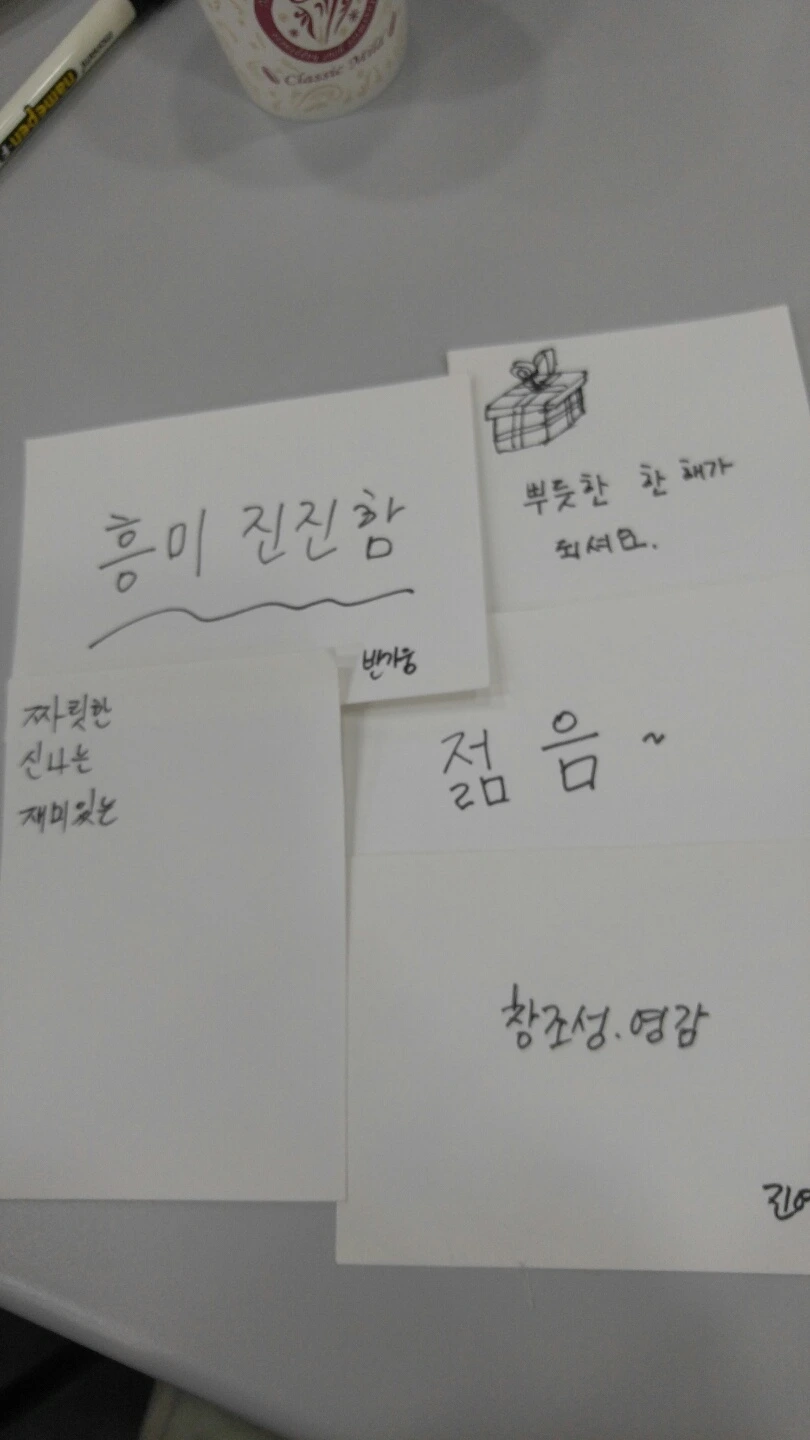 namepen
Classic Mild
뿌듯한 한 해가
되셔요.
흥미 진진함
반가움
짜릿한
신나는
재미있는
젊음~
창조성.영감